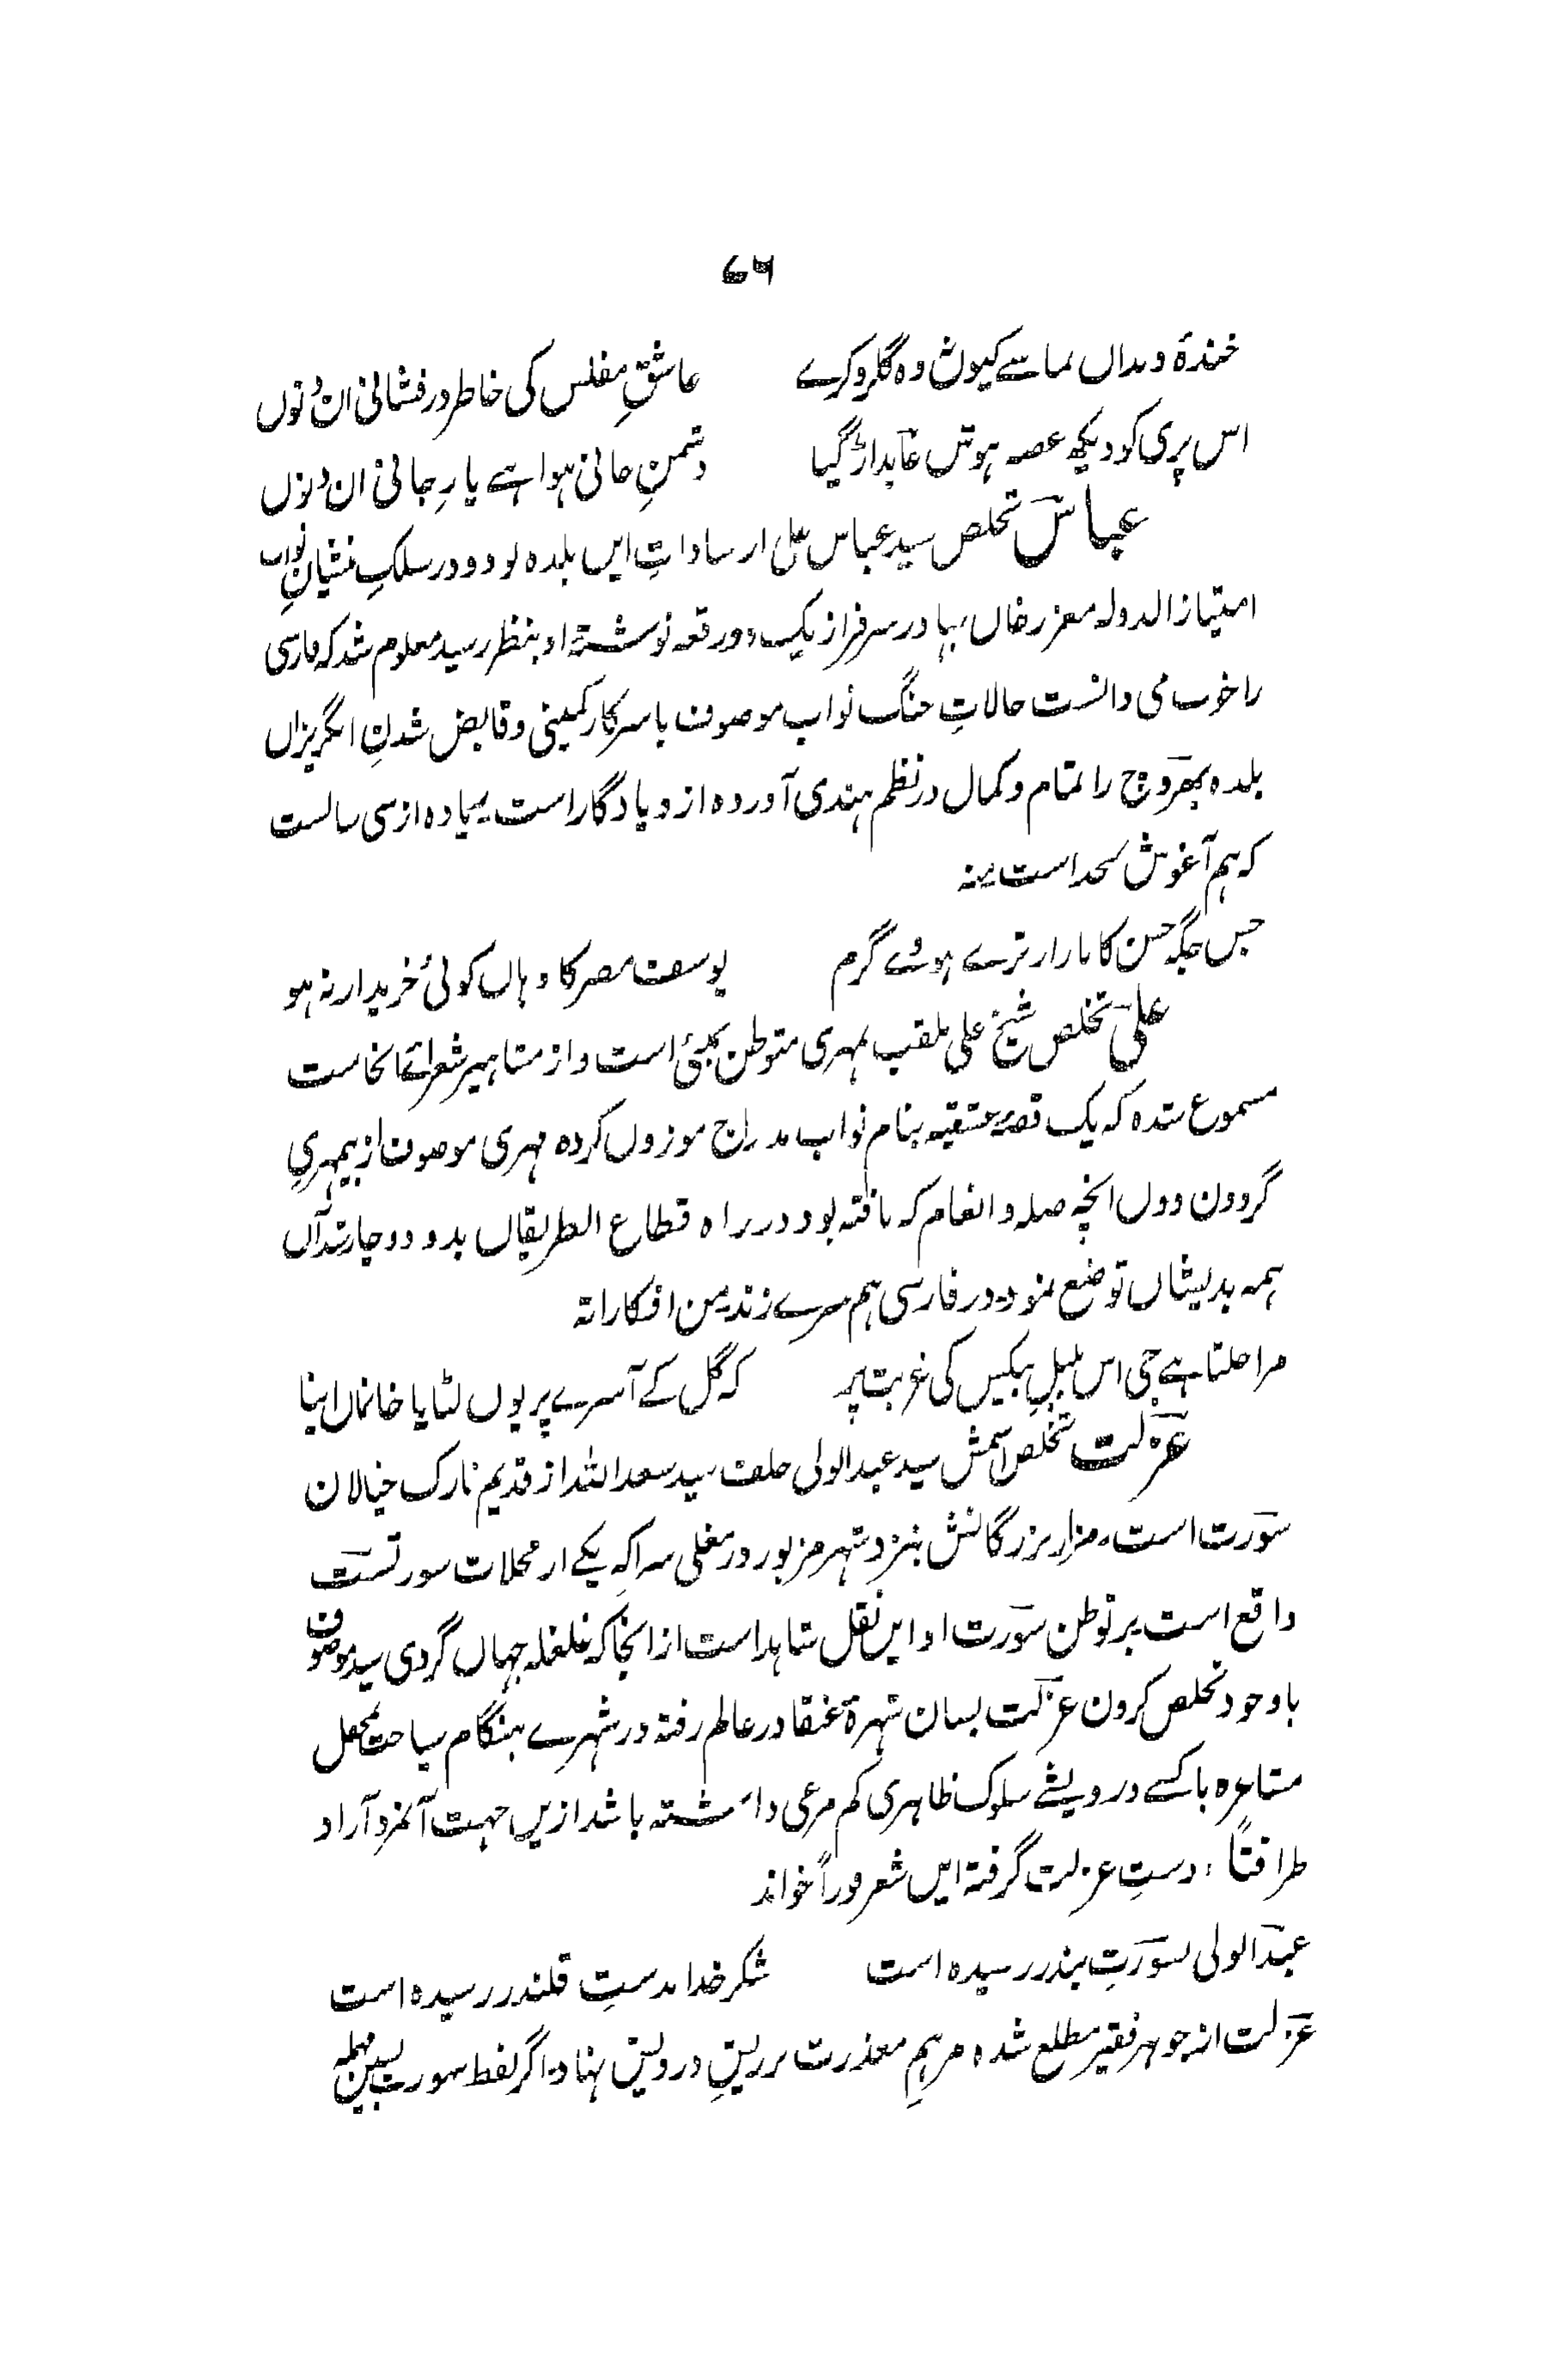 ۷۶
خندۂ دنداں نما سے کیوں نہ وہ گلرو کرے عاشقِ مفلس کی خاطر در فشانی ان دنوں
اس پری کو دیکھ غصہ ہوش عابد اڑ گیا دشمنِ جانی ہوا ہے یارِ جانی ان دنوں
عباس تخلص سید عباس علی از ساداتِ ایں بلدہ بود و در سلکِ منشیانِ نواب
امتیاز الدولہ معزز خاں بہادر سرفراز یک دو رقعہ نوشتۂ او بنظر رسید معلوم شد کہ فارسی
را خوب می دانست حالاتِ جنگ نواب موصوف با سرکار کمپنی و قابض شدنِ انگریزاں
بلدہ بھروچ را تمام و کمال در نظم ہندی آوردہ ازو یادگار است۔ زیادہ از سی سالست
کہ ہم آغوش لحد است منہ
جس جگہ حسن کا بازار ترے ہوئے گرم یوسف مصر کا وہاں کوئی خریدار نہ ہو
علی تخلص شیخ علی ملقب بمہری متوطن بمبئی است و از مشاہیر شعرائے آنجاست
مسموع شدہ کہ یک قصۂ عشقیہ بنام نواب مدراج موزوں کردہ مہری موصوف از بیمہریِ
گردون دوں انچہ صلہ و انعام کہ یافتہ بود در راہ قطاع الطریقاں بدو دوچار شد آں
ہمہ بدیشاں تواضع نمود۔ در فارسی ہم سرے زند من افکاراتہ
مرا جلتا ہے جی اس بلبلِ بیکس کی غربت پہ کہ گل کے آسرے پر یوں لٹایا خانماں اپنا
عزلت تخلص اسمش سید عبدالولی خلف سید سعد اللہ از قدیم نازک خیالان
سورت است۔ مزار بزرگانش نزد شہر مزبور در مغلی سرا کہ یکے از محلات سورتست
واقع است بر توطن سورت او ایں نقل شاہد است از انجا کہ غلغلہ جہاں گردی سید موصوف
باوجود تخلص کردن عزلت بسان شہرۂ عنقا در عالم رفتہ در شہرے ہنگام سیاحت محفل
مشاعرہ با کسے درویشے سلوک ظاہری کم مرعی داشتہ باشد ازیں جہت آنمرد آزاد
ظرافتاً دستِ عزلت گرفتہ ایں شعر فوراً خواند
عبدالولی بسورتِ بندر رسیدہ است شکر خدا بدستِ قلندر رسیدہ است
عزلت از جوہر فقیر مطلع شدہ مرہمِ معذرت بر ریشِ درویش نہاد۔ اگر لفظ سورت بسین مہملہ